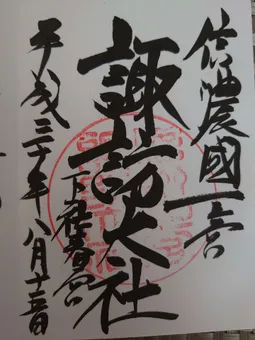 信濃國一之宮
諏訪大社
下社春宮
平成三十年八月十三日